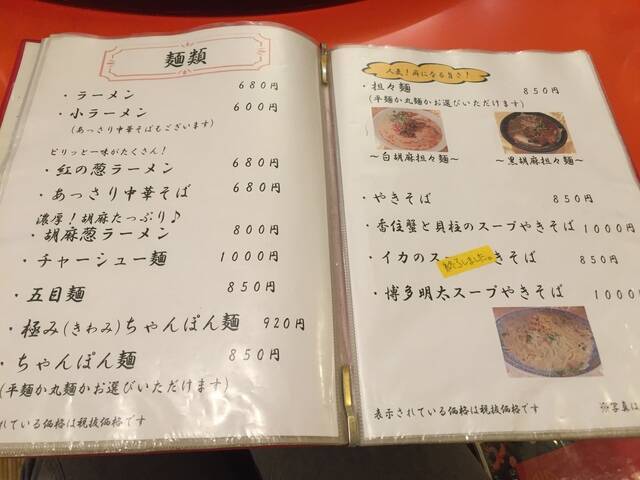 麺類
・ラーメン 680円
・小ラーメン 600円
(あっさり中華そばもございます)
ピリッと一味がたくさん!
・紅の葱ラーメン 680円
・あっさり中華そば 680円
濃厚!胡麻たっぷり♪
・胡麻葱ラーメン 800円
・チャーシュー麺 1000円
・五目麺 850円
・極み(きわみ)ちゃんぽん麺 920円
・ちゃんぽん麺 850円
(平麺か丸麺かお選びいただけます)
れている価格は税抜価格です
人気!病になる旨さ!
・担々麺 850円
(平麺か丸麺かお選びいただけます)
〜白胡麻担々麺〜 〜黒胡麻担々麺〜
・やきそば 850円
・香住蟹と貝柱のスープやきそば 1000円
・イカのス きそば 850円
終了しました。
・博多明太スープやきそば 1000
表示されている価格は税抜価格です
※写真は